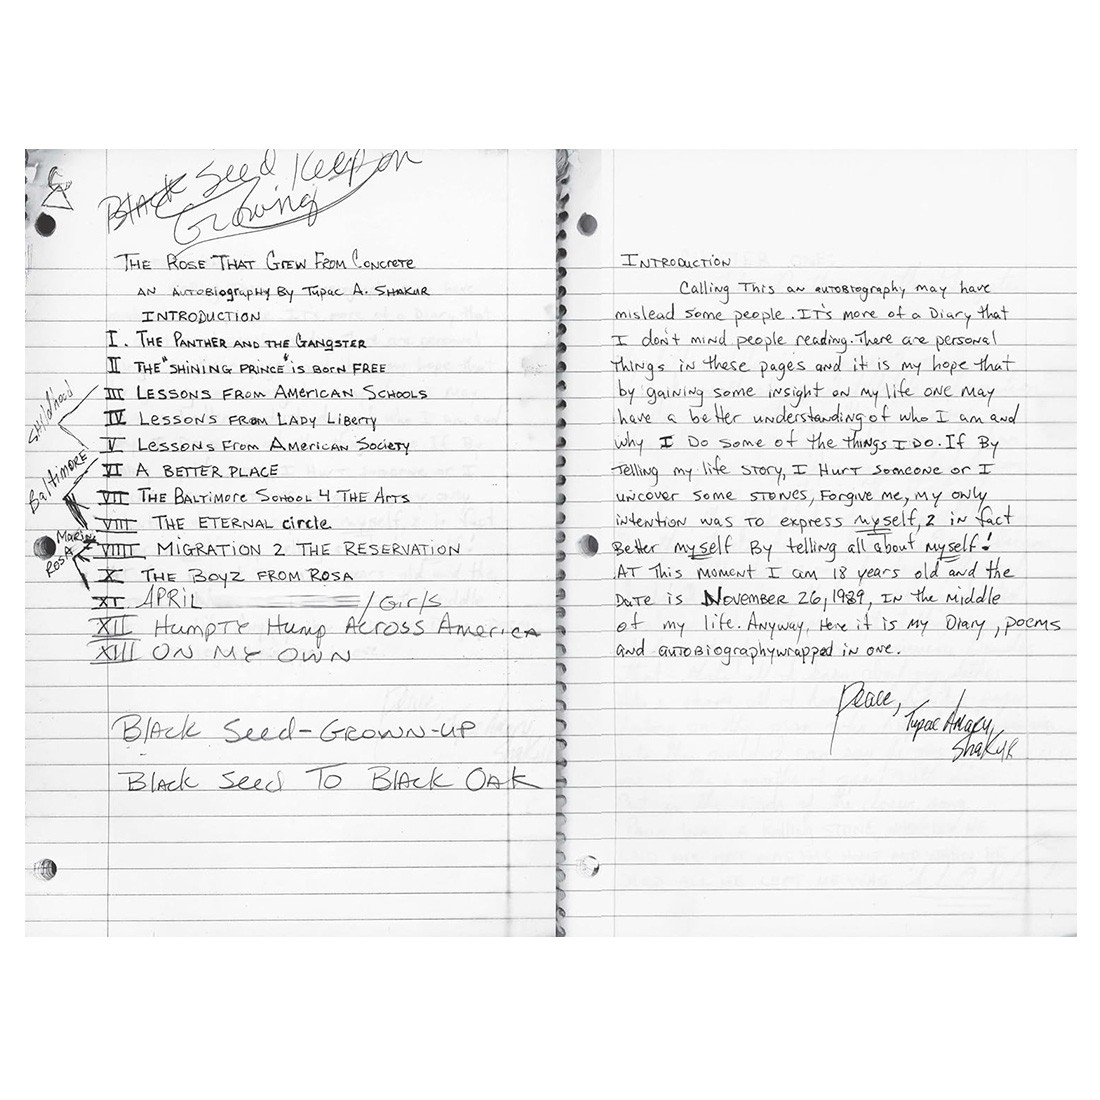 Black Seed Keep on
Growing
THE ROSE THAT GREW FROM CONCRETE
AN AUTOBIOGRAPHY BY TUPAC A. SHAKUR
INTRODUCTION
I. THE PANTHER AND THE GANGSTER
II THE "SHINING PRINCE" is BORN FREE
III LESSONS FROM AMERICAN SCHOOLS
IV LESSONS FROM LADY LIBERTY
V LESSONS FROM AMERICAN SOCIETY
VI A BETTER PLACE
VII THE BALTIMORE SCHOOL 4 THE ARTS
VIII THE ETERNAL circle
VIIII MIGRATION 2 THE RESERVATION
X THE BOYZ FROM ROSA
XI APRIL / Girls
XII HUMPTY HUMP ACROSS AMERICA
XIII ON MY OWN
Baltimore
ROSA
BLACK SEED-GROWN-UP
BLACK SEED TO BLACK OAK
INTRODUCTION
Calling This an AUTOBIOGRAPHY may have
mislead some people. IT's more of a Diary that
I don't mind people reading. There are personal
Things in these pages and it is my hope that
by gaining some insight on my life one may
have a better understanding of who I am and
why I Do some of the things I DO. If By
Telling my life story, I Hurt someone or I
uncover some STONES, Forgive me, my only
intention was to express myself, 2 in fact
Better myself By telling all about myself!
AT This moment I am 18 years old and the
Date is NOVEMBER 26, 1989, IN the Middle
of my life. Anyway, Here it is my Diary, poems
and AUTOBIOGRAPHY wrapped in one.
Peace,
Tupac Amaru
Shakur